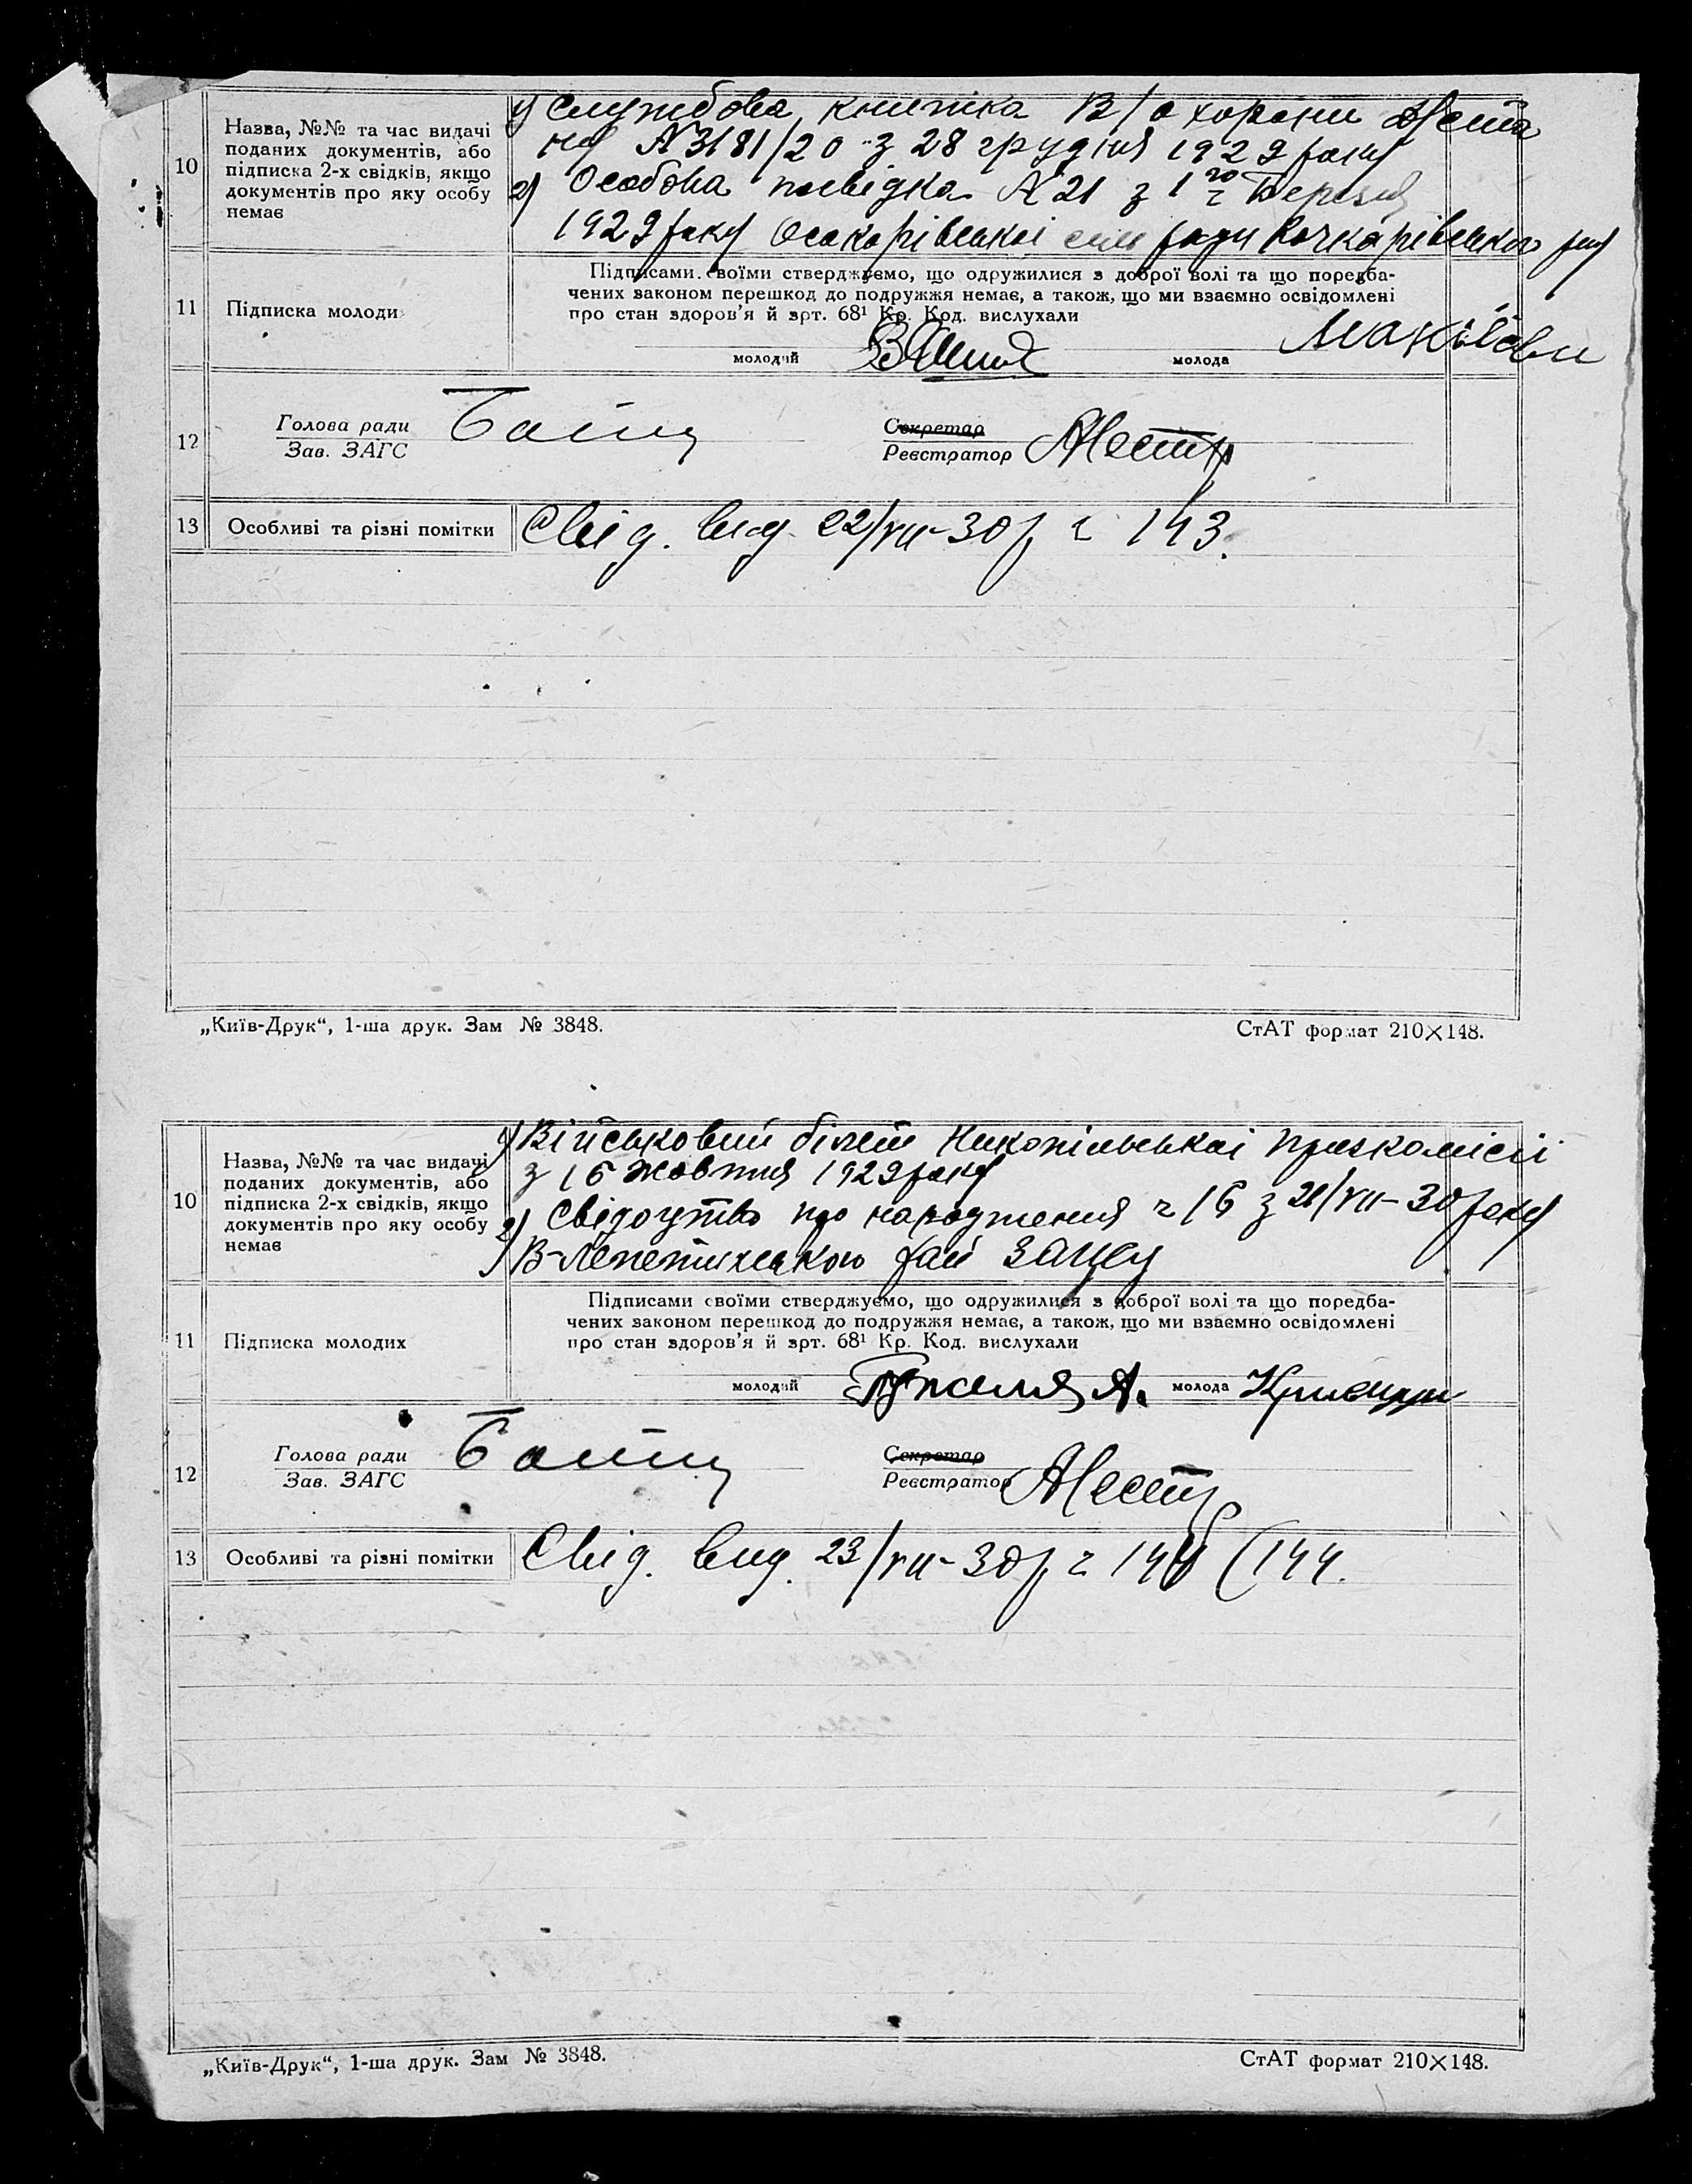 10
Назва, №№ та час видачі
поданих документів, або
підписка 2-х свідків, якщо
документів про яку особу
немає
1) Службова книжка В/охорони
№ 3181/20 з 28 грудня 1929 року
2) Особова посвідка № 21 з 1го Березня
1929 року Осокорівської сель ради Качкарівського рну
11
Підписка молоди
Підписами своїми стверджуємо, що одружилися з доброї волі та що поредба-
чених законом перешкод до подружжя немає, а також, що ми взаємно освідомлені
про стан здоров'я й арт. 68¹ Кр. Код. вислухали
молодий
молода
12
Голова ради
Зав. ЗАГС
Секретар
Реєстратор
13
Особливі та різні помітки
Свід. вид. 22/VII-30р ч 143.
„Київ-Друк“, 1-ша друк. Зам № 3848.
СтАТ формат 210×148.
10
Назва, №№ та час видачі
поданих документів, або
підписка 2-х свідків, якщо
документів про яку особу
немає
1) Військовий білет Никопільської призкомісії
з 16 жовтня 1929 року
2) Свідоцтво про народження ч 16 з 21/VII-30 року
В-Лепетиського рай ЗАГСу
11
Підписка молодих
Підписами своїми стверджуємо, що одружилися з доброї волі та що поредба-
чених законом перешкод до подружжя немає, а також, що ми взаємно освідомлені
про стан здоров'я й арт. 68¹ Кр. Код. вислухали
молодий
молода
12
Голова ради
Зав. ЗАГС
Секретар
Реєстратор
13
Особливі та різні помітки
Свід. вид. 23/VII-30р ч 144 (144.
„Київ-Друк“, 1-ша друк. Зам № 3848.
СтАТ формат 210×148.